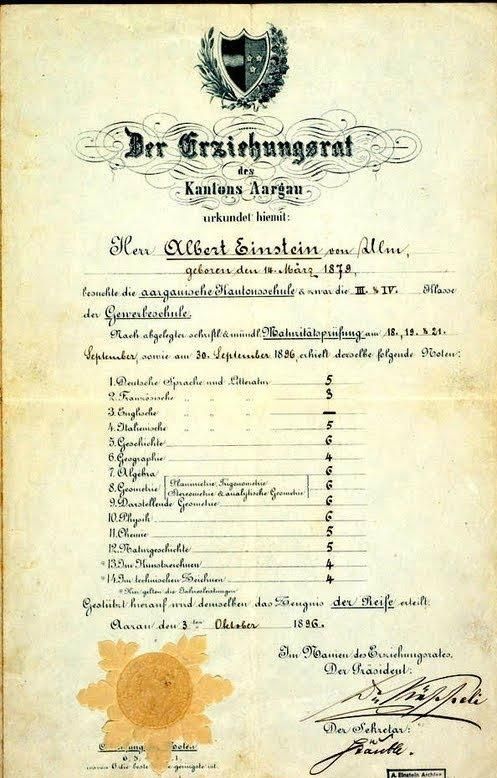 Der Erziehungsrat
des
Kantons Aargau
urkundet hiemit:
Herr Albert Einstein von Ulm,
geboren den 14. März 1879,
besuchte die aargauische Kantonsschule & zwar die III. & IV. Klasse
der Gewerbeschule.
Nach abgelegter schriftl. & mündl. Maturitätsprüfung am 18., 19. & 21.
September, sowie am 30. September 1896, erhielt derselbe folgende Noten:
1. Deutsche Sprache und Litteratur 5
2. Französische „ „ „ 3
3. Englische „ „ „ —
4. Italienische „ „ „ 5
5. Geschichte 6
6. Geographie 4
7. Algebra 6
8. Geometrie [Planimetrie, Trigonometrie 6
Stereometrie & analytische Geometrie] 6
9. Darstellende Geometrie 6
10. Physik 6
11. Chemie 5
12. Naturgeschichte 5
*13. Im Kunstzeichnen 4
*14. Im technischen Zeichnen 4
*Hier gelten die Jahresleistungen
Gestützt hierauf wird demselben das Zeugnis der Reife erteilt.
Aarau den 3ten Oktober 1896.
Im Namen des Erziehungsrates,
Der Präsident:
Der Sekretär:
Noten
6 die beste geringste ist.
A. Einstein Archive